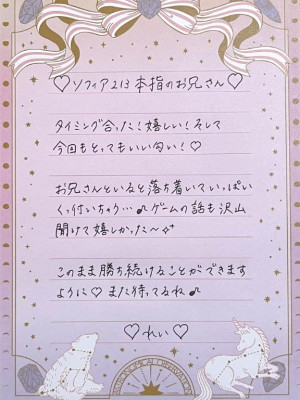 ♡ソフィア213 本指のお兄さん♡
タイミング合った！嬉しい！そして
今回もとってもいい匂い！♡
お兄さんといると落ち着いていっぱい
くっ付いちゃう…♪ゲームの話も沢山
聞けて嬉しかった〜✧
このまま勝ち続けることができます
ように♡また待ってるね♪
♡れい♡